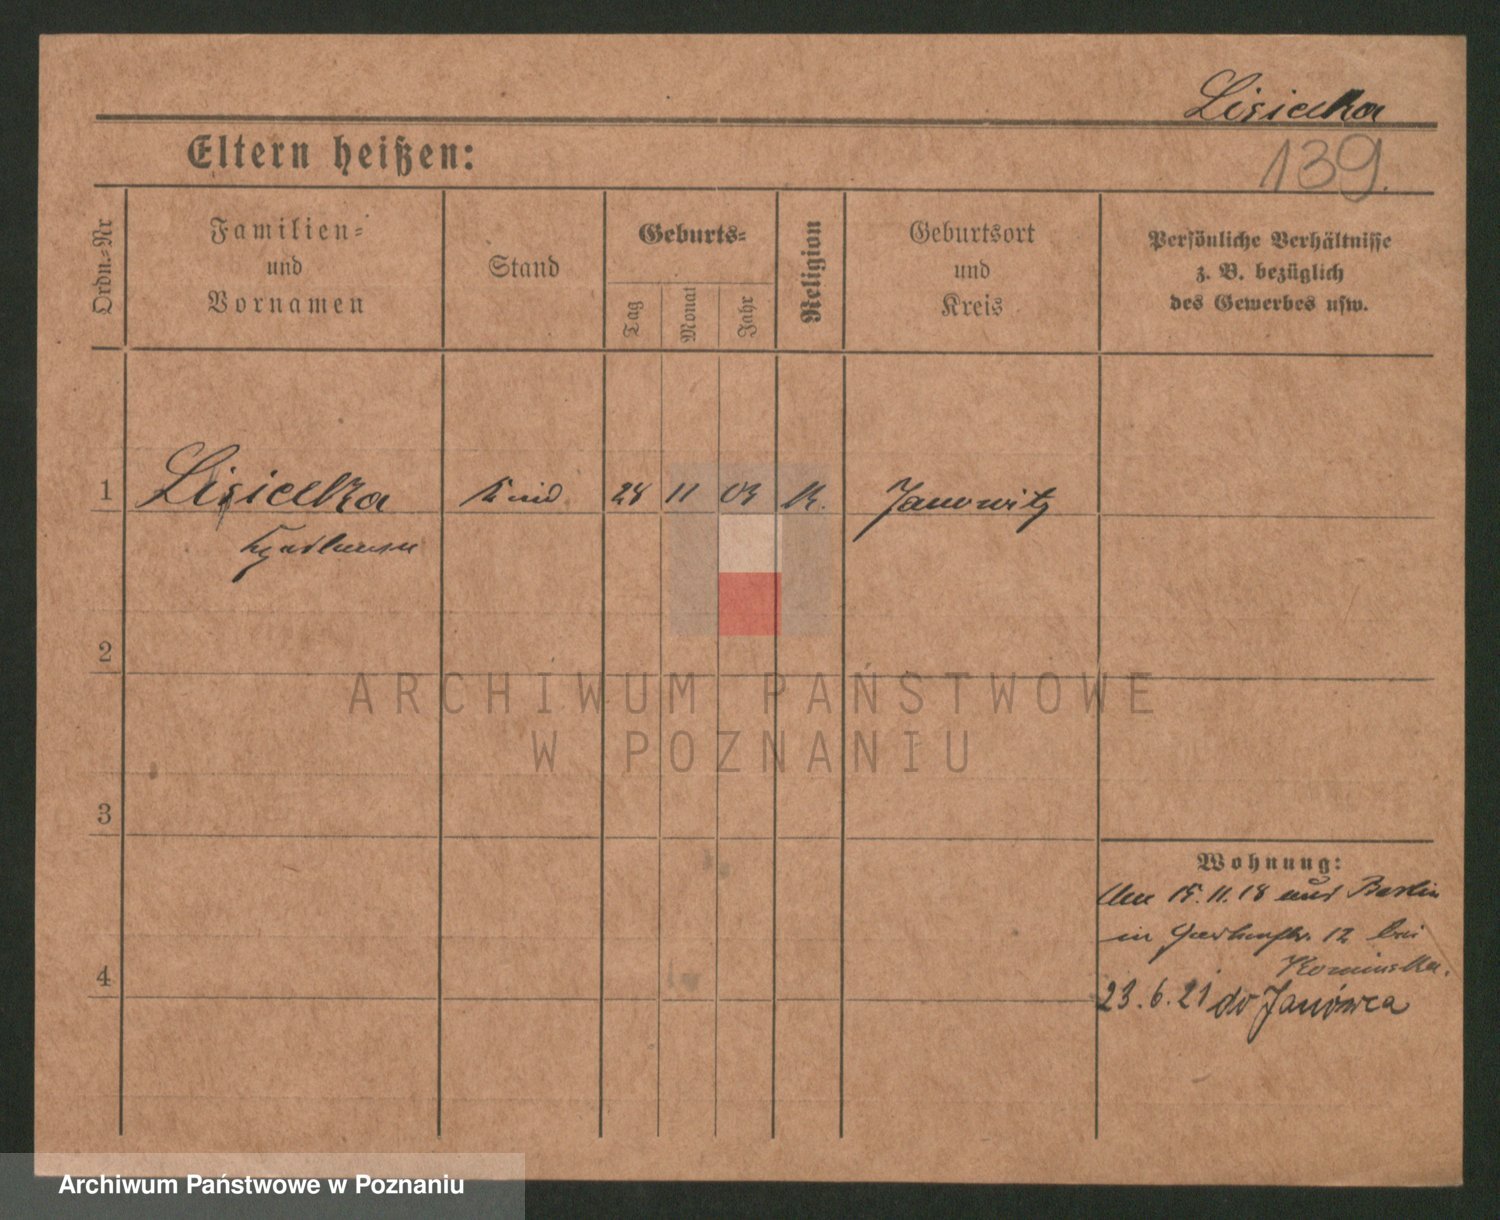 Lisiecka
139.
Eltern heißen:
Ordn.-Nr
Familien-
und
Vornamen
Stand
Geburts-
Tag
Monat
Jahr
Religion
Geburtsort
und
Kreis
Persönliche Verhältnisse
z. B. bezüglich
des Gewerbes usw.
1 Lisiecka Kind 28 11 03 K. Janowitz
2
3
4
Wohnung:
Am 15.11.18 aus Berlin
in 12 bei
Kominska.
23.6.21 do Janówca
ARCHIWUM PAŃSTWOWE
W POZNANIU
Archiwum Państwowe w Poznaniu